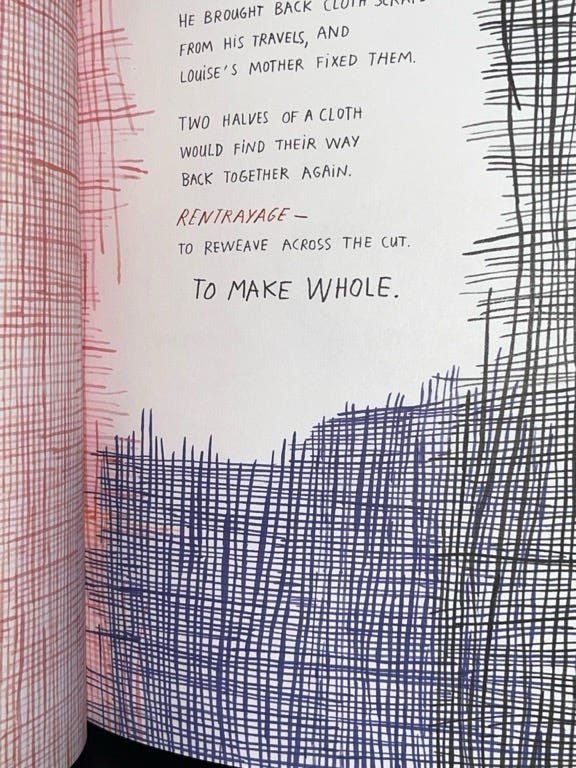 HE BROUGHT BACK CLOTH SCRAPS
FROM HIS TRAVELS, AND
LOUISE'S MOTHER FIXED THEM.
TWO HALVES OF A CLOTH
WOULD FIND THEIR WAY
BACK TOGETHER AGAIN.
RENTRAYAGE —
TO REWEAVE ACROSS THE CUT.
TO MAKE WHOLE.